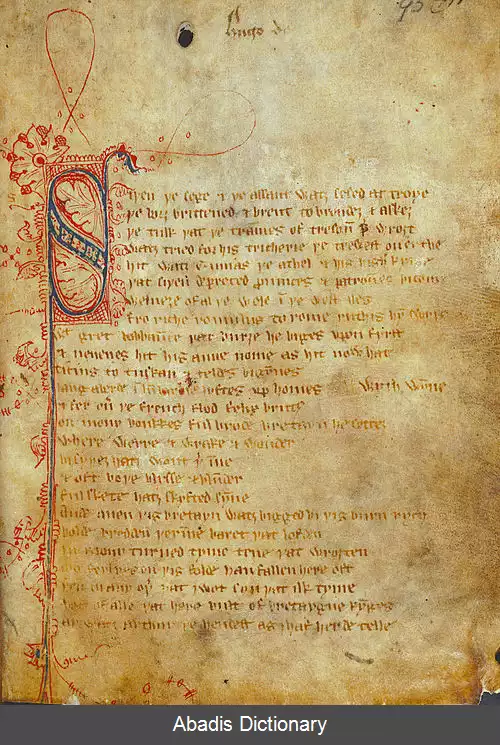 Hugo de
Siþen þe sege & þe assaut watz sesed at troye
þe borȝ brittened & brent to brondez & askez
þe tulk þat þe trammes of tresoun þer wroȝt
watz tried for his tricherie þe trewest on erthe
hit watz Ennias þe athel & his highe kynde
þat siþen depreced prouinces & patrounes bicome
welneȝe of al þe wele in þe west iles
fro riche romulus to rome ricchis hym swyþe
gret bobbaunce þat burȝe he biges vpon fyrst
& neuenes hit his aune nome as hit now hat
ticius to tuskan & teldes bigynnes
langaberde in lumbardie lyftes vp homes wyth wynne
& fer ouer þe french flod felix brutus
on mony bonkkes ful brode bretayn he settez
where werre & wrake & wonder
bi syþez hatz wont þer inne
& oft boþe blysse & blunder
ful skete hatz skyfted synne
Ande quen þis bretayn watz bigged bi þis burn rych
bolde bredden þerinne baret þat lofden
in mony turned tyme tene þat wroȝten
mo ferlyes on þis folde han fallen here oft
þen in any oþer þat I wot syn þat ilk tyme
bot of alle þat here bult of bretaygne kynges
ay watz arthur þe hendest as I haf herde telle
Abadis Dictionary